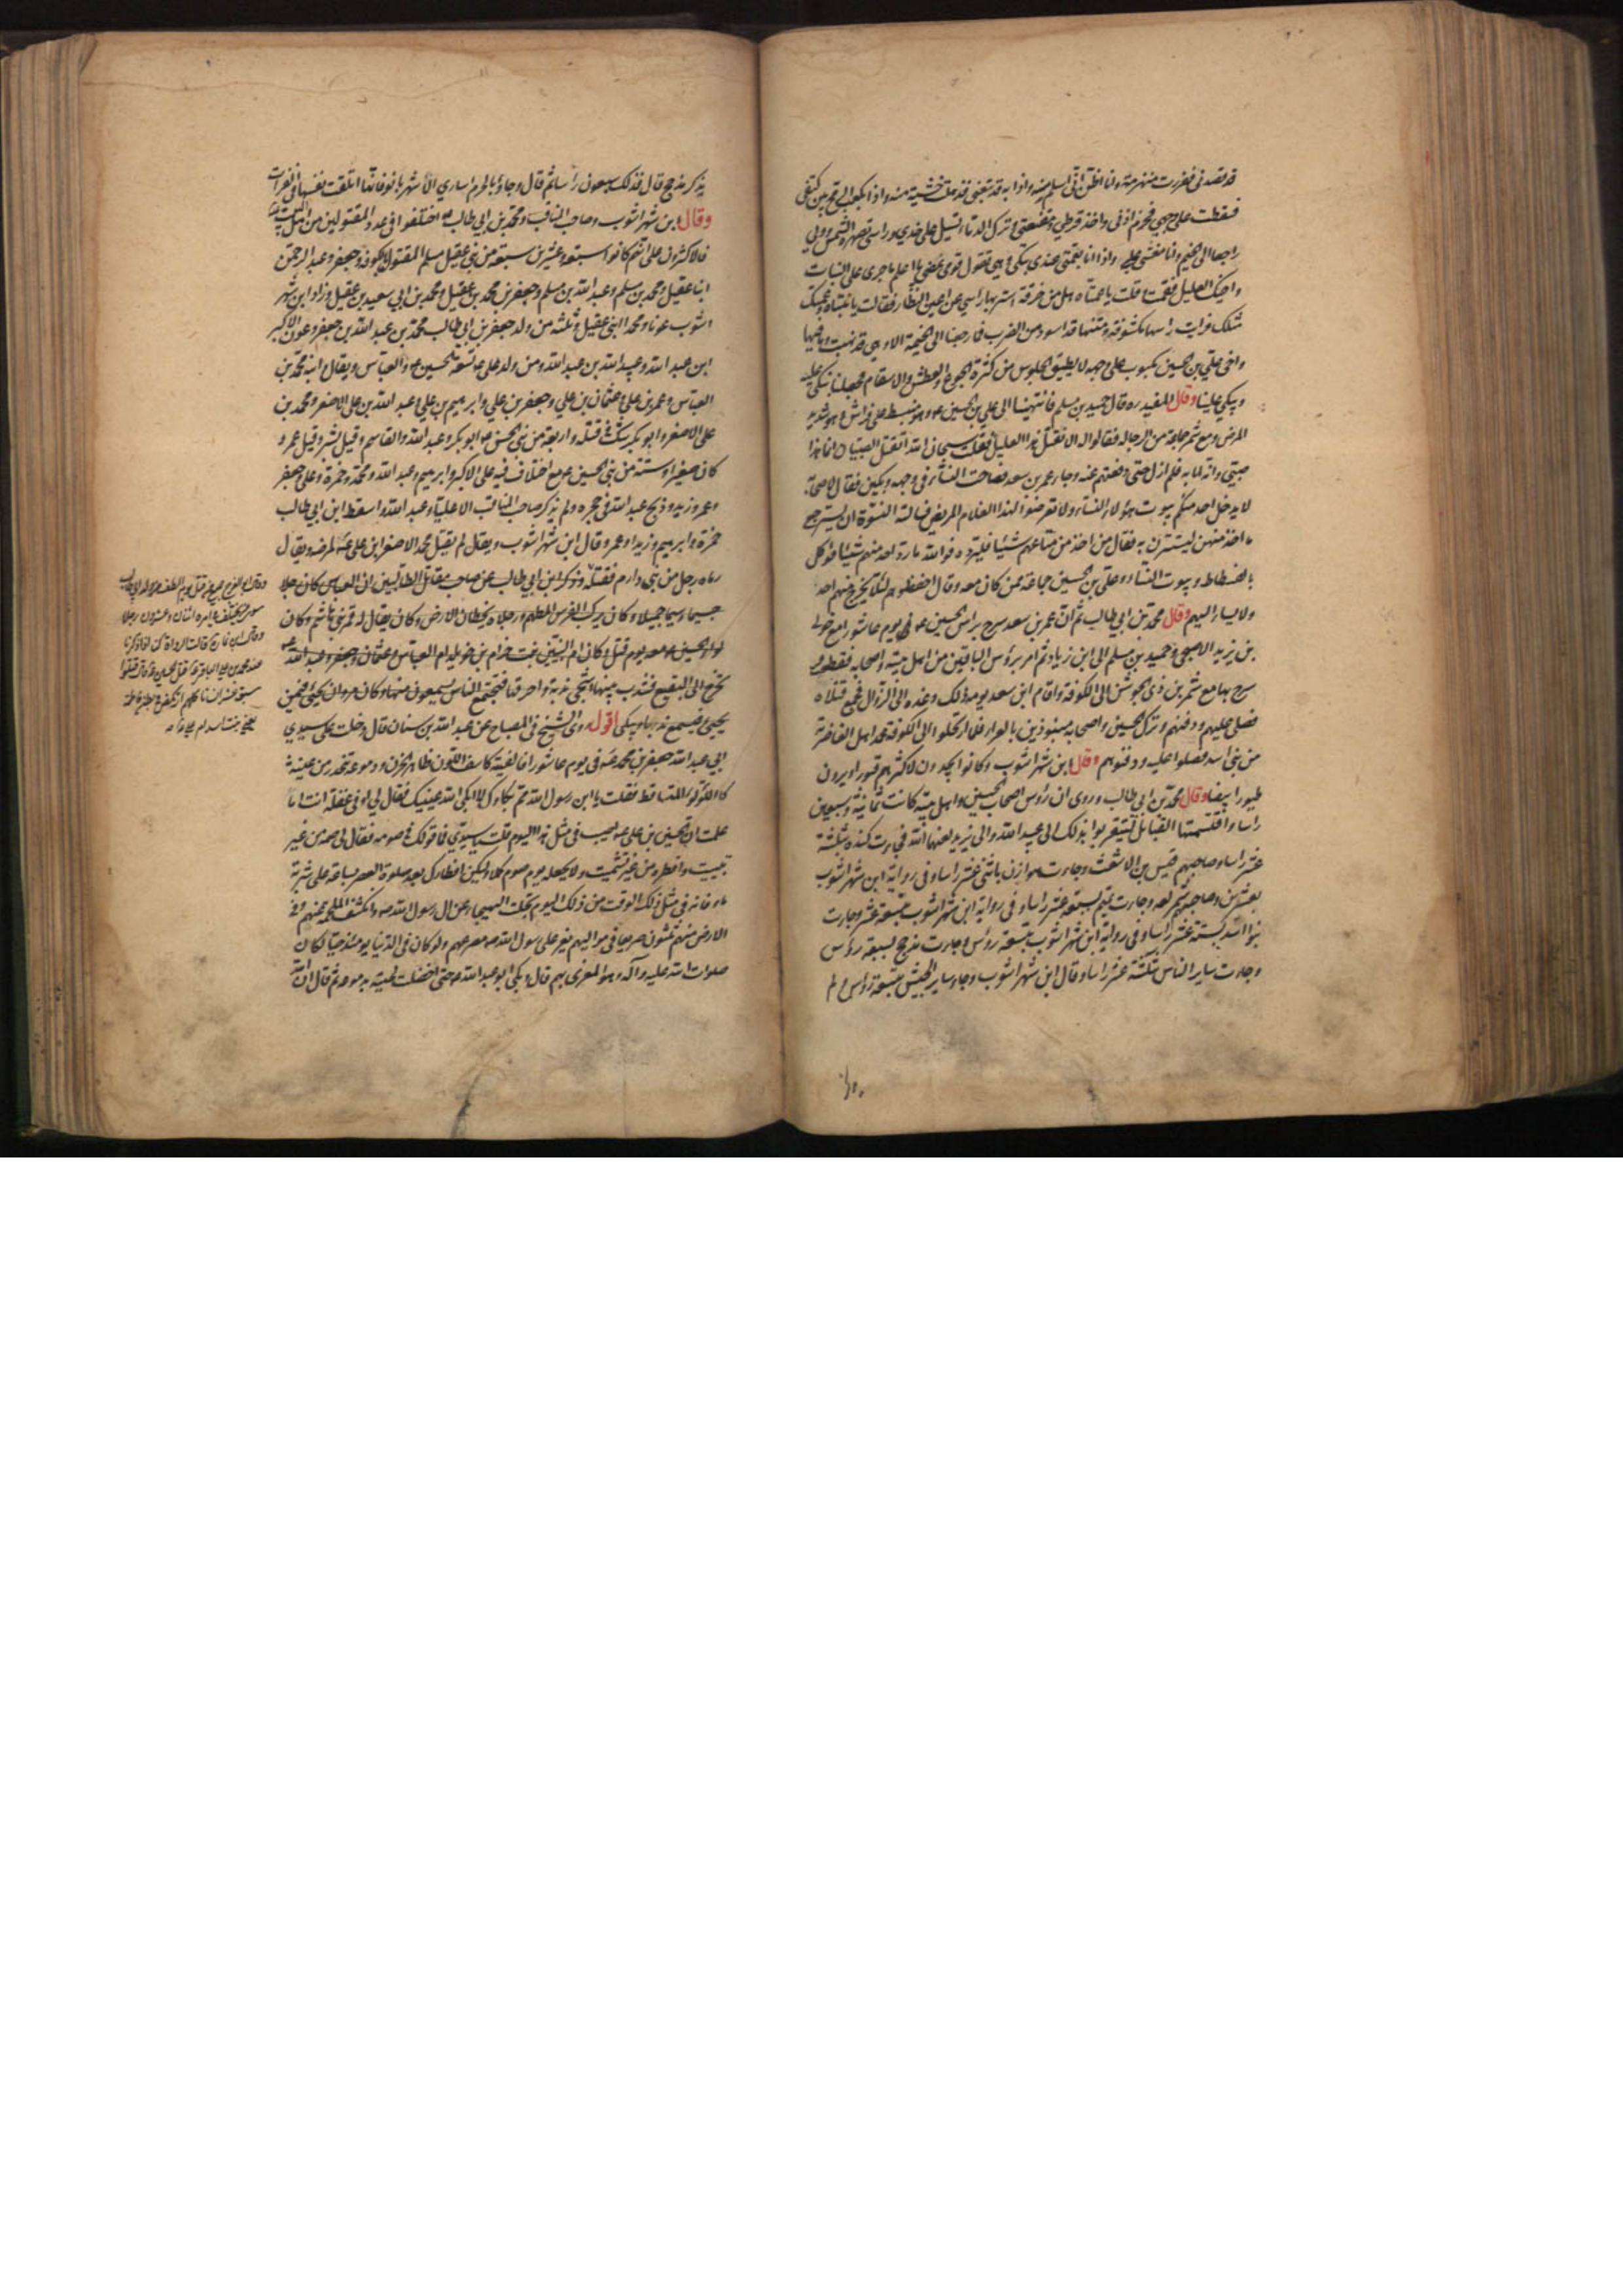 قد قصدني ففررت منهزمة وانا اظن اني اسلم منه واذا به قد تبعني فذهلت خشية منه واذا بكعب الرمح بين كتفي
فسقطت على وجهي فخرم اذني واخذ قرطي ومقنعتي وترك الدماء تسيل على خدي وراسي تصهره الشمس وولى
راجعا الى الخيم وانا مغشى علي واذا انا بعمتي عندي تبكي وهي تقول قومي نمضي ما اعلم ما جرى على البنات
واخيك العليل فقمت وقلت يا عمتاه هل من خرقة استر بها رأسي عن اعين النظار فقالت يا بنتاه وعمتك
مثلك فرأيت راسها مكشوفة ومتنها قد اسود من الضرب فما رجعنا الى الخيمة الا وهي قد نهبت وما فيها
واخي علي بن الحسين مكبوب على وجهه لا يطيق الجلوس من كثرة الجوع والعطش والاسقام فجعلنا نبكي عليه
ويبكي علينا وقال المفيد ره قال حميد بن مسلم فانتهينا الى علي بن الحسين ع وهو منبسط على فراش وهو شديد
المرض ومع شمر جماعة من الرجالة فقالوا له الا نقتل هذا العليل فقلت سبحان الله اتقتل الصبيان انما هذا
صبي وانه لما به فلم ازل حتى دفعتهم عنه وجاء عمر بن سعد فصاحت النساء في وجهه وبكين فقال لاصحابه
لا يدخل احد منكم بيوت هؤلاء النساء ولا تعرضوا لهذا الغلام المريض فسالته النسوة ان يسترجع
ما اخذ منهن ليستترن به فقال من اخذ من متاعهم شيئا فليرده فوالله ما رد احد منهم شيئا فوكل
بالفسطاط وبيوت النساء وعلي بن الحسين جماعة ممن كان معه وقال احفظوهم لئلا يخرج منهم احد
ولا يساء اليهم وقال محمد بن ابي طالب ثم ان عمر بن سعد سرح براس الحسين ع في يوم عاشوراء مع خولي
بن يزيد الاصبحي وحميد بن مسلم الى ابن زياد ثم امر برؤس الباقين من اهل بيته واصحابه فقطعت و
سرح بها مع شمر بن ذي الجوشن الى الكوفة واقام ابن سعد يومه ذلك وغده الى الزوال فجمع قتلاه
فصلى عليهم ودفنهم وترك الحسين واصحابه منبوذين بالعراء فلما ارتحلوا الى الكوفة عمد اهل الغاضرية
من بني اسد فصلوا عليه ودفنوهم وقال ابن شهراشوب وكانوا يجدون لاكثرهم قبورا ويرون
طيورا بيضا وقال محمد بن ابي طالب وروي ان رؤس اصحاب الحسين واهل بيته كانت ثمانية وسبعين
راسا واقتسمتها القبائل ليتقربوا بذلك الى عبيد الله والى يزيد لعنهما الله فجاءت كندة بثلثة
عشر راسا وصاحبهم قيس بن الاشعث وجاءت هوازن باثني عشر راسا وفي رواية ابن شهراشوب
بعشرين وصاحبهم شمر لعنه وجاءت تميم بسبعة عشر راسا وفي رواية ابن شهراشوب بتسعة عشر وجاءت
بنوا اسد بستة عشر راسا وفي رواية ابن شهراشوب بتسعة رؤس وجاءت مذحج بسبعة رؤس
وجاءت ساير الناس بثلثة عشر راسا وقال ابن شهراشوب وجاء ساير الجيش بتسعة رؤس ولم
يذكر مذحج قال فذلك سبعون راسا ثم قال وجاؤا بالحرم اسارى الا شهربانويه فانها اتلفت نفسها في الفرات
وقال ابن شهراشوب وصاحب المناقب ومحمد بن ابي طالب اختلفوا في عدد المقتولين من اهل البيت
فالاكثرون على انهم كانوا سبعة وعشرين سبعة من بني عقيل مسلم المقتول بالكوفة وجعفر وعبد الرحمن
ابنا عقيل ومحمد بن مسلم وعبد الله بن مسلم وجعفر بن محمد بن عقيل ومحمد بن ابي سعيد بن عقيل وزاد ابن شهر
اشوب عونا ومحمدا ابني عقيل وثلثة من ولد جعفر بن ابي طالب محمد بن عبد الله بن جعفر وعون الاكبر
ابن عبد الله وعبيد الله بن عبد الله ومن ولد علي ع تسعة الحسين ع والعباس ويقال ابنه محمد بن
العباس وعمر بن علي وعثمان بن علي وجعفر بن علي وابرهيم بن علي وعبد الله بن علي الاصغر ومحمد بن
علي الاصغر وابو بكر شك في قتله واربعة من بني الحسن ع ابو بكر وعبد الله والقاسم وقيل بشر وقيل عمر و
كان صغيرا وستة من بني الحسين ع مع اختلاف فيه علي الاكبر وابرهيم وعبد الله ومحمد وحمزة وعلي وجعفر
وعمر وزيد وذبح عبد الله في حجره ولم يذكر صاحب المناقب الا عليا وعبد الله واسقط ابن ابي طالب
حمزة وابرهيم وزيدا وعمر وقال ابن شهراشوب ويقال لم يقتل محمد الاصغر ابن علي ع لمرضه ويقال
رماه رجل من بني دارم فقتله وذكر ابن ابي طالب عن صاحب مقاتل الطالبيين ان العباس كان رجلا
جسيما وسيما جميلا وكان يركب الفرس المطهم ورجلاه يخطان الارض وكان يقال له قمر بني هاشم وكان
لواء الحسين ع معه يوم قتل وكان ام البنين بنت حزام بن خويلد ام العباس وعثمان وجعفر وعبد الله
تخرج الى البقيع فتندب بنيها اشجى ندبة واحرقها فتجتمع الناس يسمعون منها وكان مروان يجيئ فيمن
يجيئ فيسمع ندبها ويبكي اقول روى الشيخ في المصباح عن عبد الله بن سنان قال دخلت على سيدي
ابي عبد الله جعفر بن محمد ع في يوم عاشورا فالفيته كاسف اللون ظاهر الحزن ودموعه تنحدر من عينيه
كاللؤلؤ المتساقط فقلت يا ابن رسول الله مم بكاؤك لا ابكى الله عينيك فقال لي او في غفلة انت اما
علمت ان الحسين بن علي ع اصيب في مثل هذا اليوم قلت سيدي فما قولك في صومه فقال لي صمه من غير
تبييت وافطره من غير تشميت ولا تجعله يوم صوم كملا وليكن افطارك بعد صلوة العصر بساعة على شربة
ماء فانه في مثل ذلك الوقت من ذلك اليوم تجلت الهيجاء عن ال رسول الله ص وانكشفت الملحمة عنهم وفي
الارض منهم ثلثون صريعا في مواليهم يعز على رسول الله ص مصرعهم ولو كان في الدنيا يومئذ حيا لكان
صلوات الله عليه وآله هو المعزى بهم قال وبكى ابو عبد الله ع حتى اخضلت لحيته بدموعه ثم قال ان الله